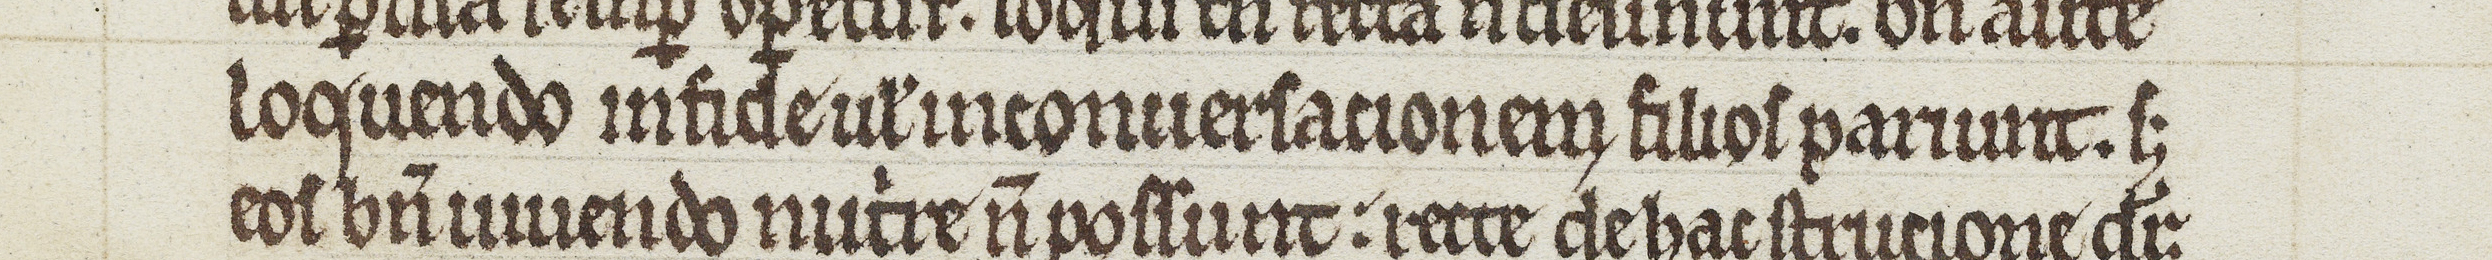 semp opetur. loqui tn recta n desinunt. bn aute
loquendo in fide ul in conuersacionem filios pariunt. sꝫ
eos bn̄ uiuendo nut're n̄ possunt: recte de hac strucione dr̄